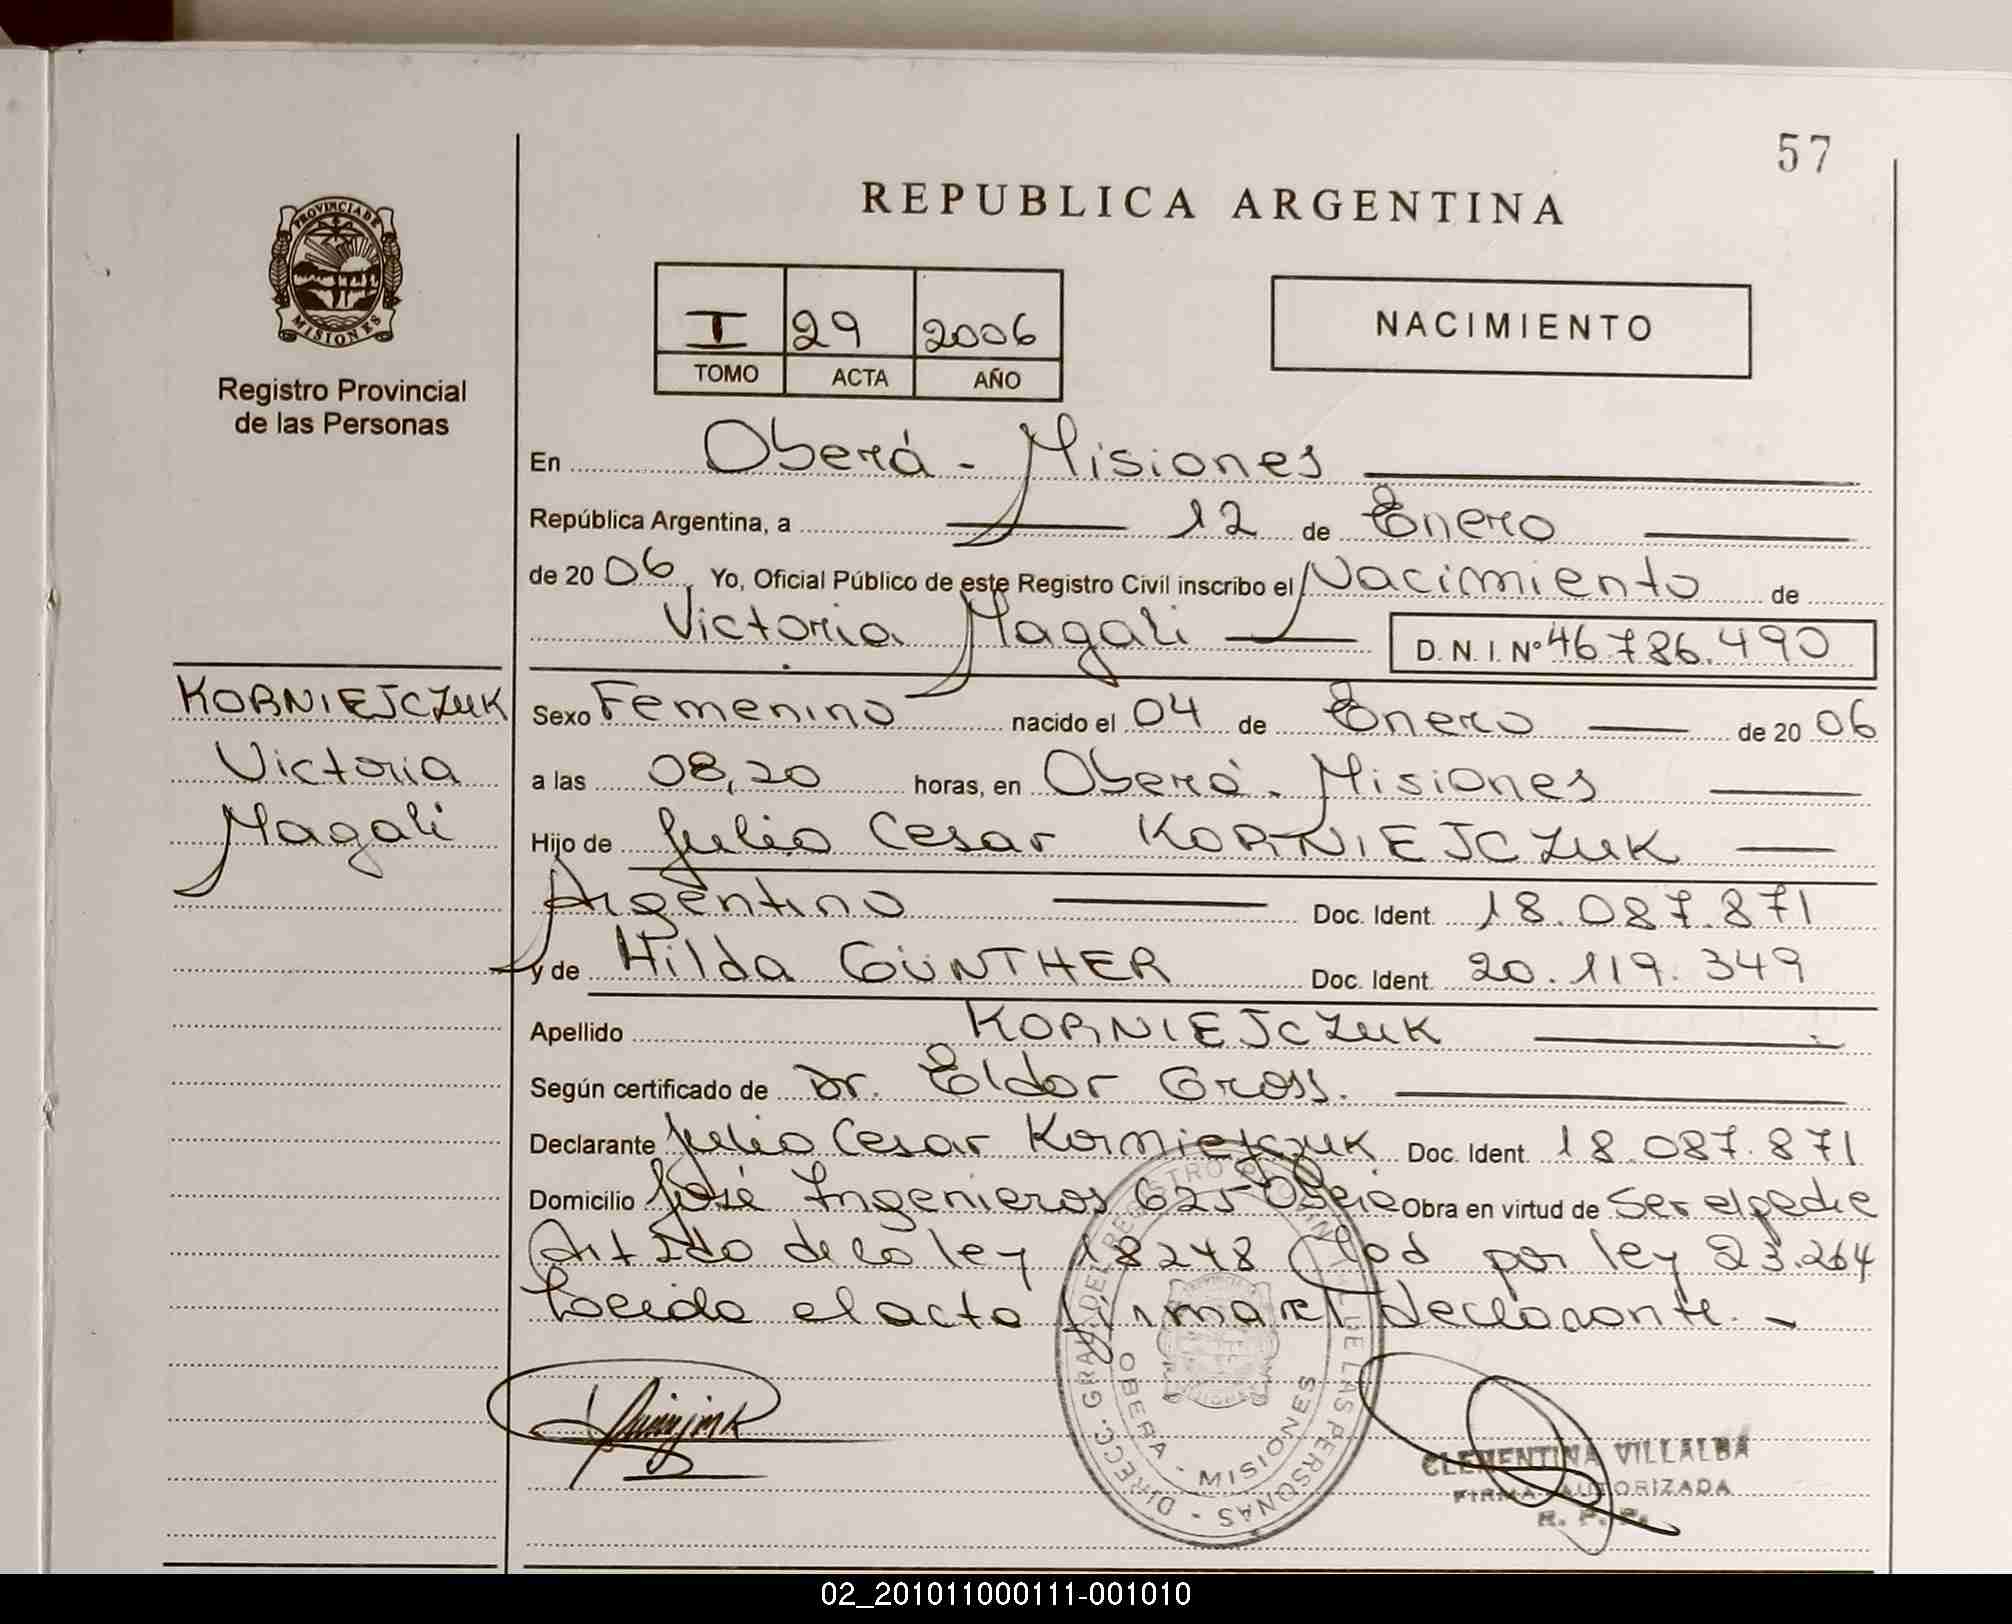 57
REPUBLICA ARGENTINA
PROVINCIA DE
MISIONES
Registro Provincial
de las Personas
I 29 2006
TOMO ACTA AÑO
NACIMIENTO
En Oberá - Misiones
República Argentina, a 12 de Enero
de 2006 Yo, Oficial Público de este Registro Civil inscribo el Nacimiento de
Victoria Magali D.N.I. Nº 46.786.490
KORNIEJCZUK
Victoria
Magali
Sexo Femenino nacido el 04 de Enero de 2006
a las 08,20 horas, en Oberá. Misiones
Hijo de Julio Cesar KORNIEJCZUK
Argentino Doc. Ident. 18.087.871
y de Hilda GÜNTHER Doc. Ident. 20.119.349
Apellido KORNIEJCZUK
Según certificado de Dr. Eldor Gross.
Declarante Julio Cesar Korniejczuk Doc. Ident. 18.087.871
Domicilio José Ingenieros 625 Obra en virtud de Ser el padre
Art de la ley 18248 Mod por ley 23.264
Leida el acta firma el declarante.-
DIRECC. GRAL. DEL REGISTRO PROVINCIAL DE LAS PERSONAS
OBERA - MISIONES
CLEMENTINA VILLALBA
FIRMA AUTORIZADA
R. P. P.
02_201011000111-001010